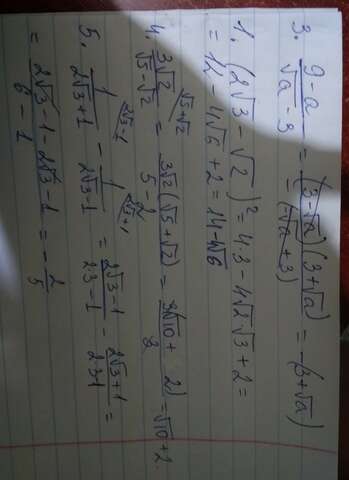 3. (9-a)/(√a-3) = (3-√a)(3+√a)/(-(√a+3)) = -(3+√a)
1. (2√3-√2)² = 4·3-4√2·√3+2=
= 12-4√6+2=14-4√6
4. 3√2/(√5-√2) = 3√2(√5+√2)/(5-2) = 3(√10+2)/3 = √10+2
√5+√2
5. 1/(2√3+1) - 1/(2√3-1) = (2√3-1)/(2·3-1) - (2√3+1)/(2·3-1) =
2√3-1 2√3+1
= (2√3-1-2√3-1)/(6-1) = -2/5